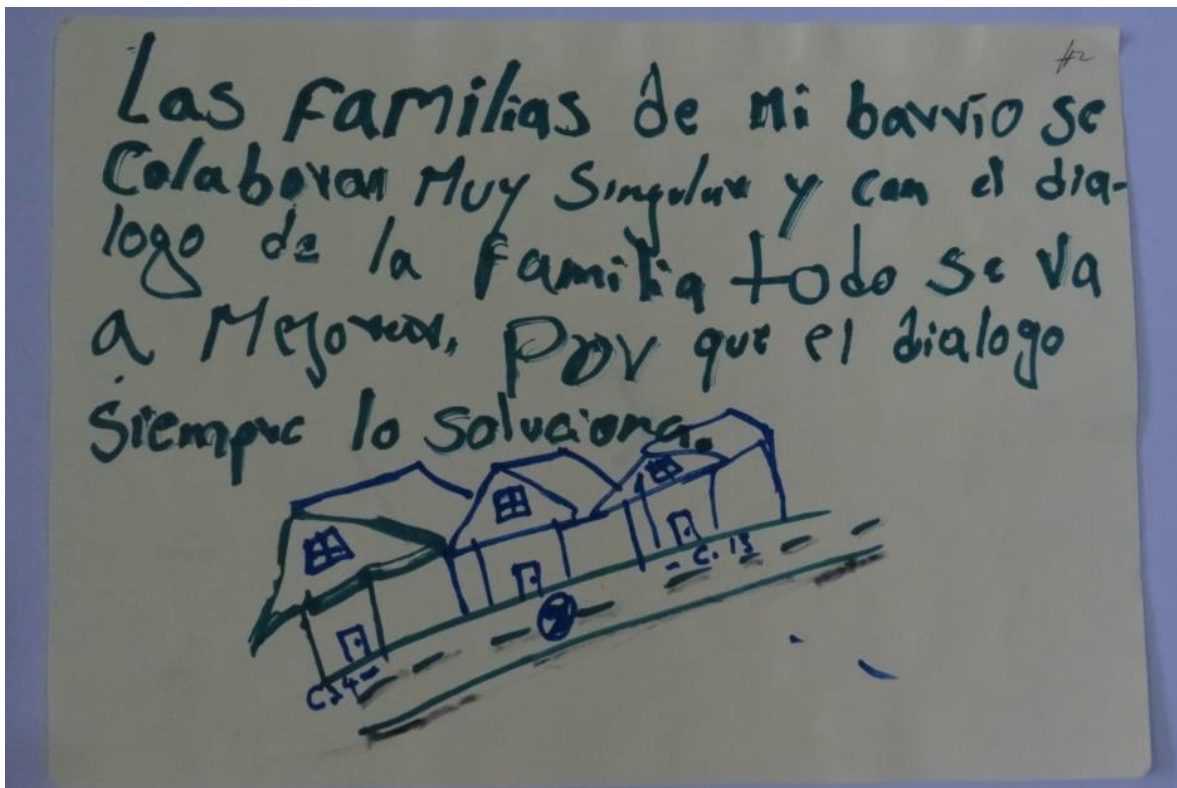 #2
Las familias de mi barrio se
Colaboran Muy Singular y con el dia-
logo de la familia todo se va
a Mejorar. Por que el dialogo
siempre lo soluciona.
C. 15